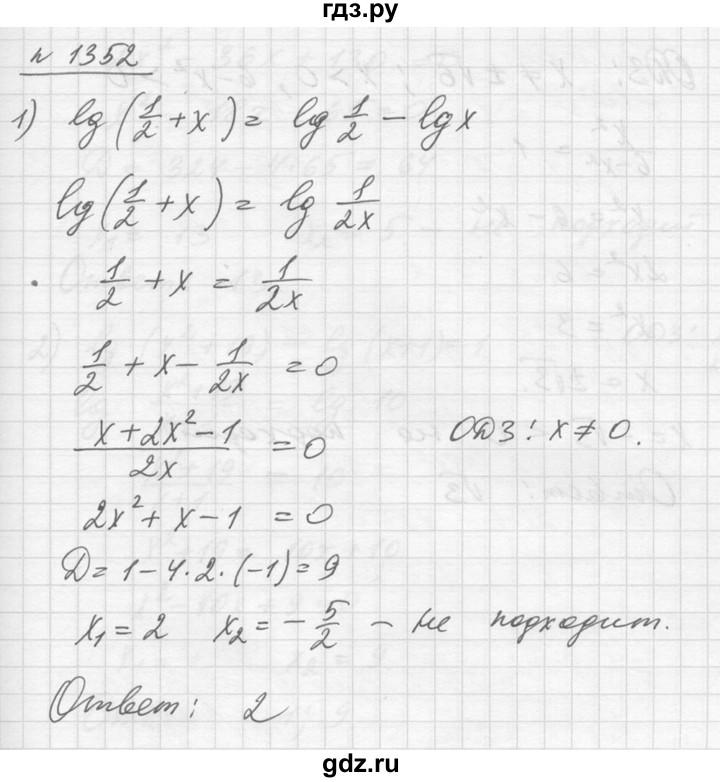 гдз.ру
n 1352
1) lg(1/2 + x) = lg 1/2 - lg x
lg(1/2 + x) = lg 1/2x
1/2 + x = 1/2x
1/2 + x - 1/2x = 0
x + 2x² - 1 / 2x = 0 ОДЗ: x ≠ 0.
2x² + x - 1 = 0
Д = 1 - 4·2·(-1) = 9
x₁ = 2 x₂ = - 5/2 - не подходит.
Ответ: 2
gdz.ru